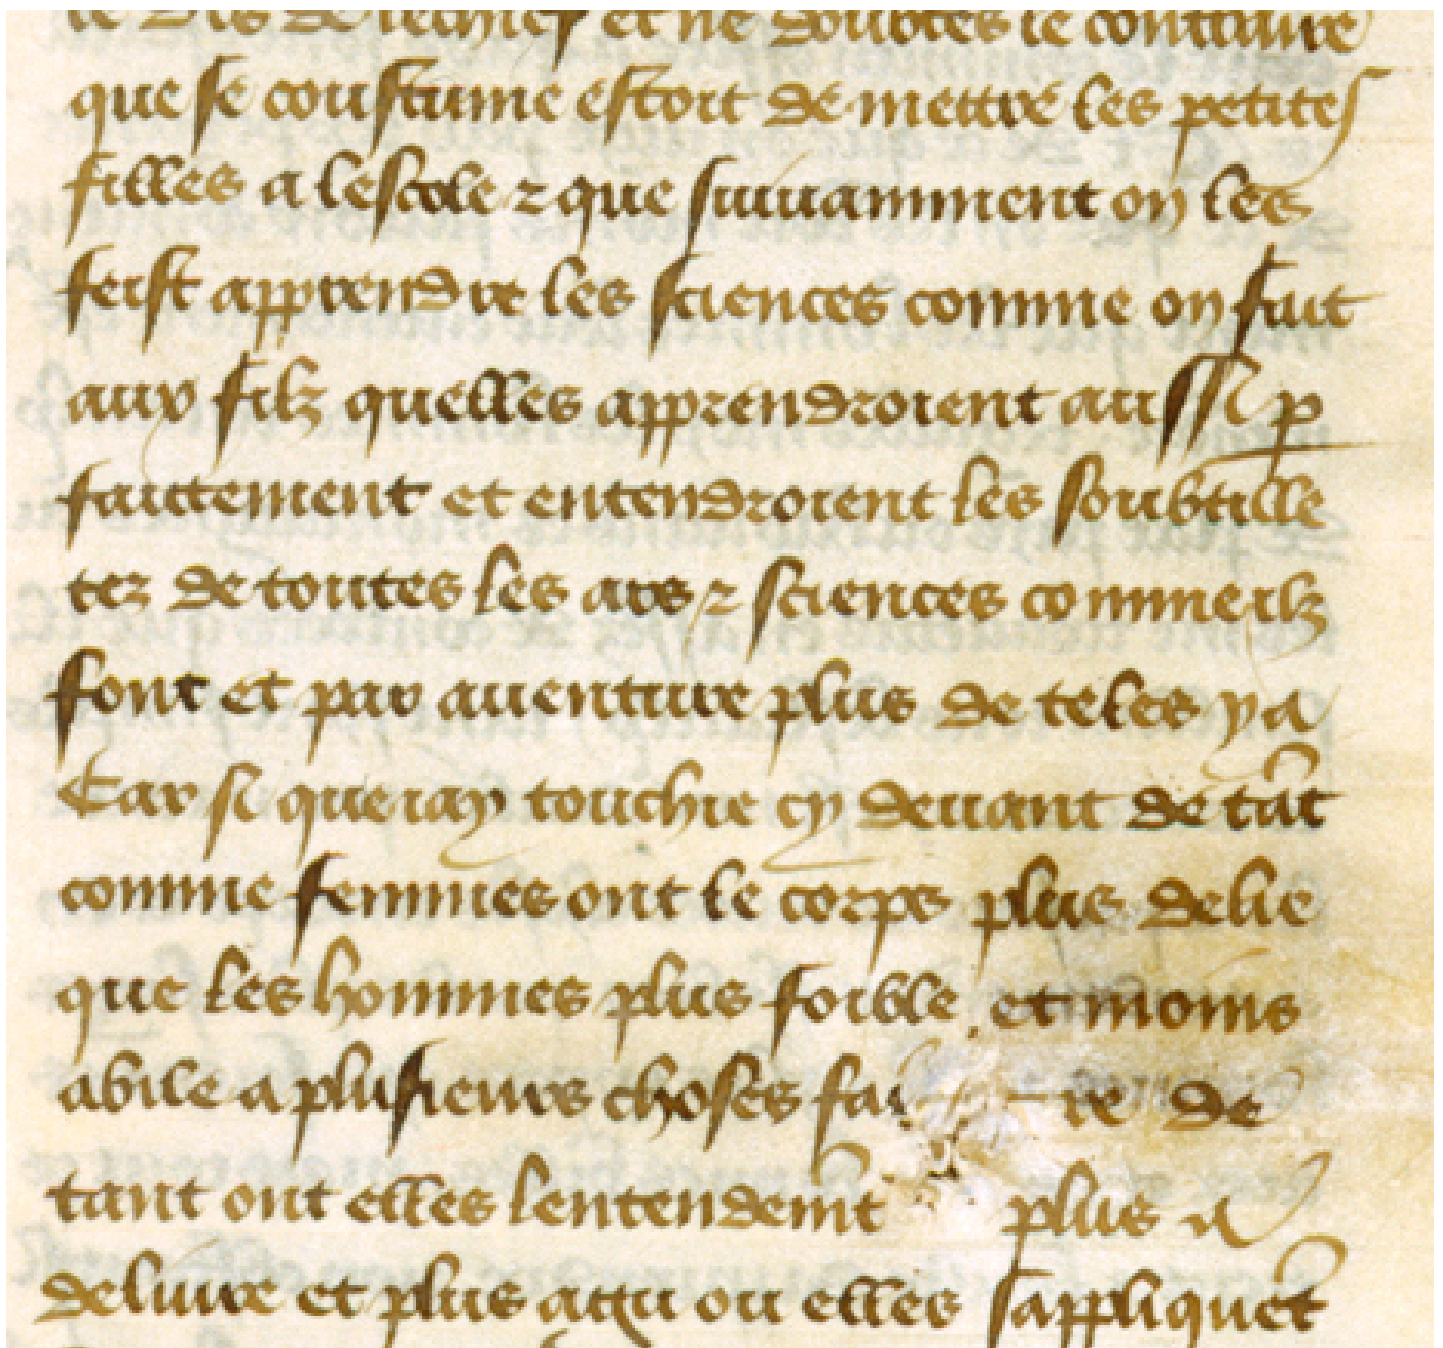 te dis derechief et ne doubtes le contraire
que se coustume estoit de mettre les petites
filles a lescole ⁊ que suivamment on les
feist apprendre les sciences comme on fait
aux filz quelles apprendroient aussi p̱
faictement et entendroient les soubtille
tez de toutes les ars ⁊ sciences comme ilz
font et par aventure plus de teles y a
Car si que iay touchie cy devant de tāt
comme femmes ont le corps plus delie
que les hommes plus foible et moins
abile a plusieurs choses fai re de
tant ont elles lentendemt̄ plus a
delivre et plus agu ou elles sappliquēt